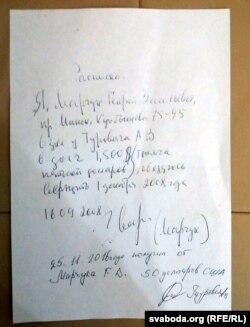 Расписка
Я, Марчук Георгий Васильевич,
пр. Минск, Куйбышева 75-45
взял у Туровича А В
в долг 1,500$ (тысяча
пятьсот долларов), обязуюсь
вернуть 1 декабря 2008 года
16 09 2008
(Марчук)
25. 11 2016 года получил от
Марчука Г. В. 50 долларов США
svaboda.org (RFE/RL)